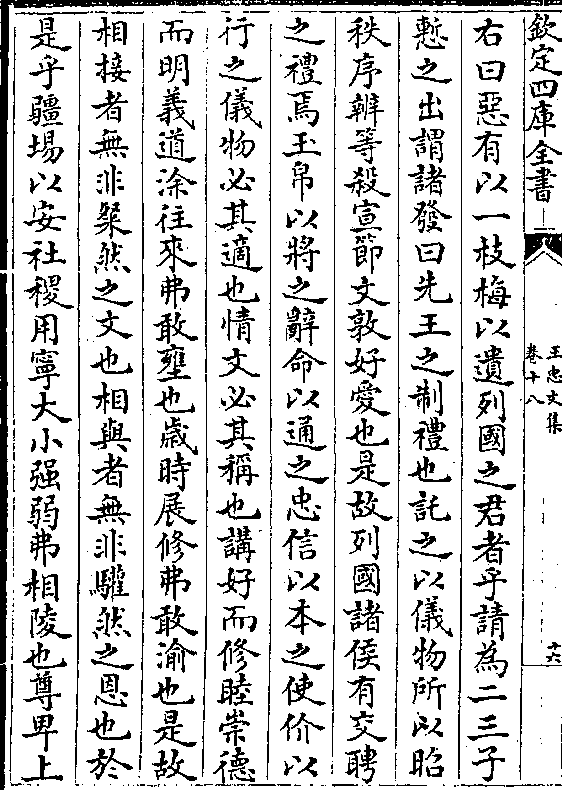 欽定四庫全書
王忠文集
卷十八
十六
右曰惡有以一枝梅以遺列國之君者乎請為二三子
慙之出謂諸發曰先王之制禮也託之以儀物所以昭
秩序辨等殺宣節文敦好愛也是故列國諸侯有交聘
之禮焉玉帛以將之辭命以通之忠信以本之使价以
行之儀物必其適也情文必其稱也講好而修睦崇德
而明義道涂往來弗敢壅也歲時展修弗敢渝也是故
相接者無非粲然之文也相與者無非驩然之恩也於
是乎疆埸以安社稷用寧大小强弱弗相陵也尊卑上